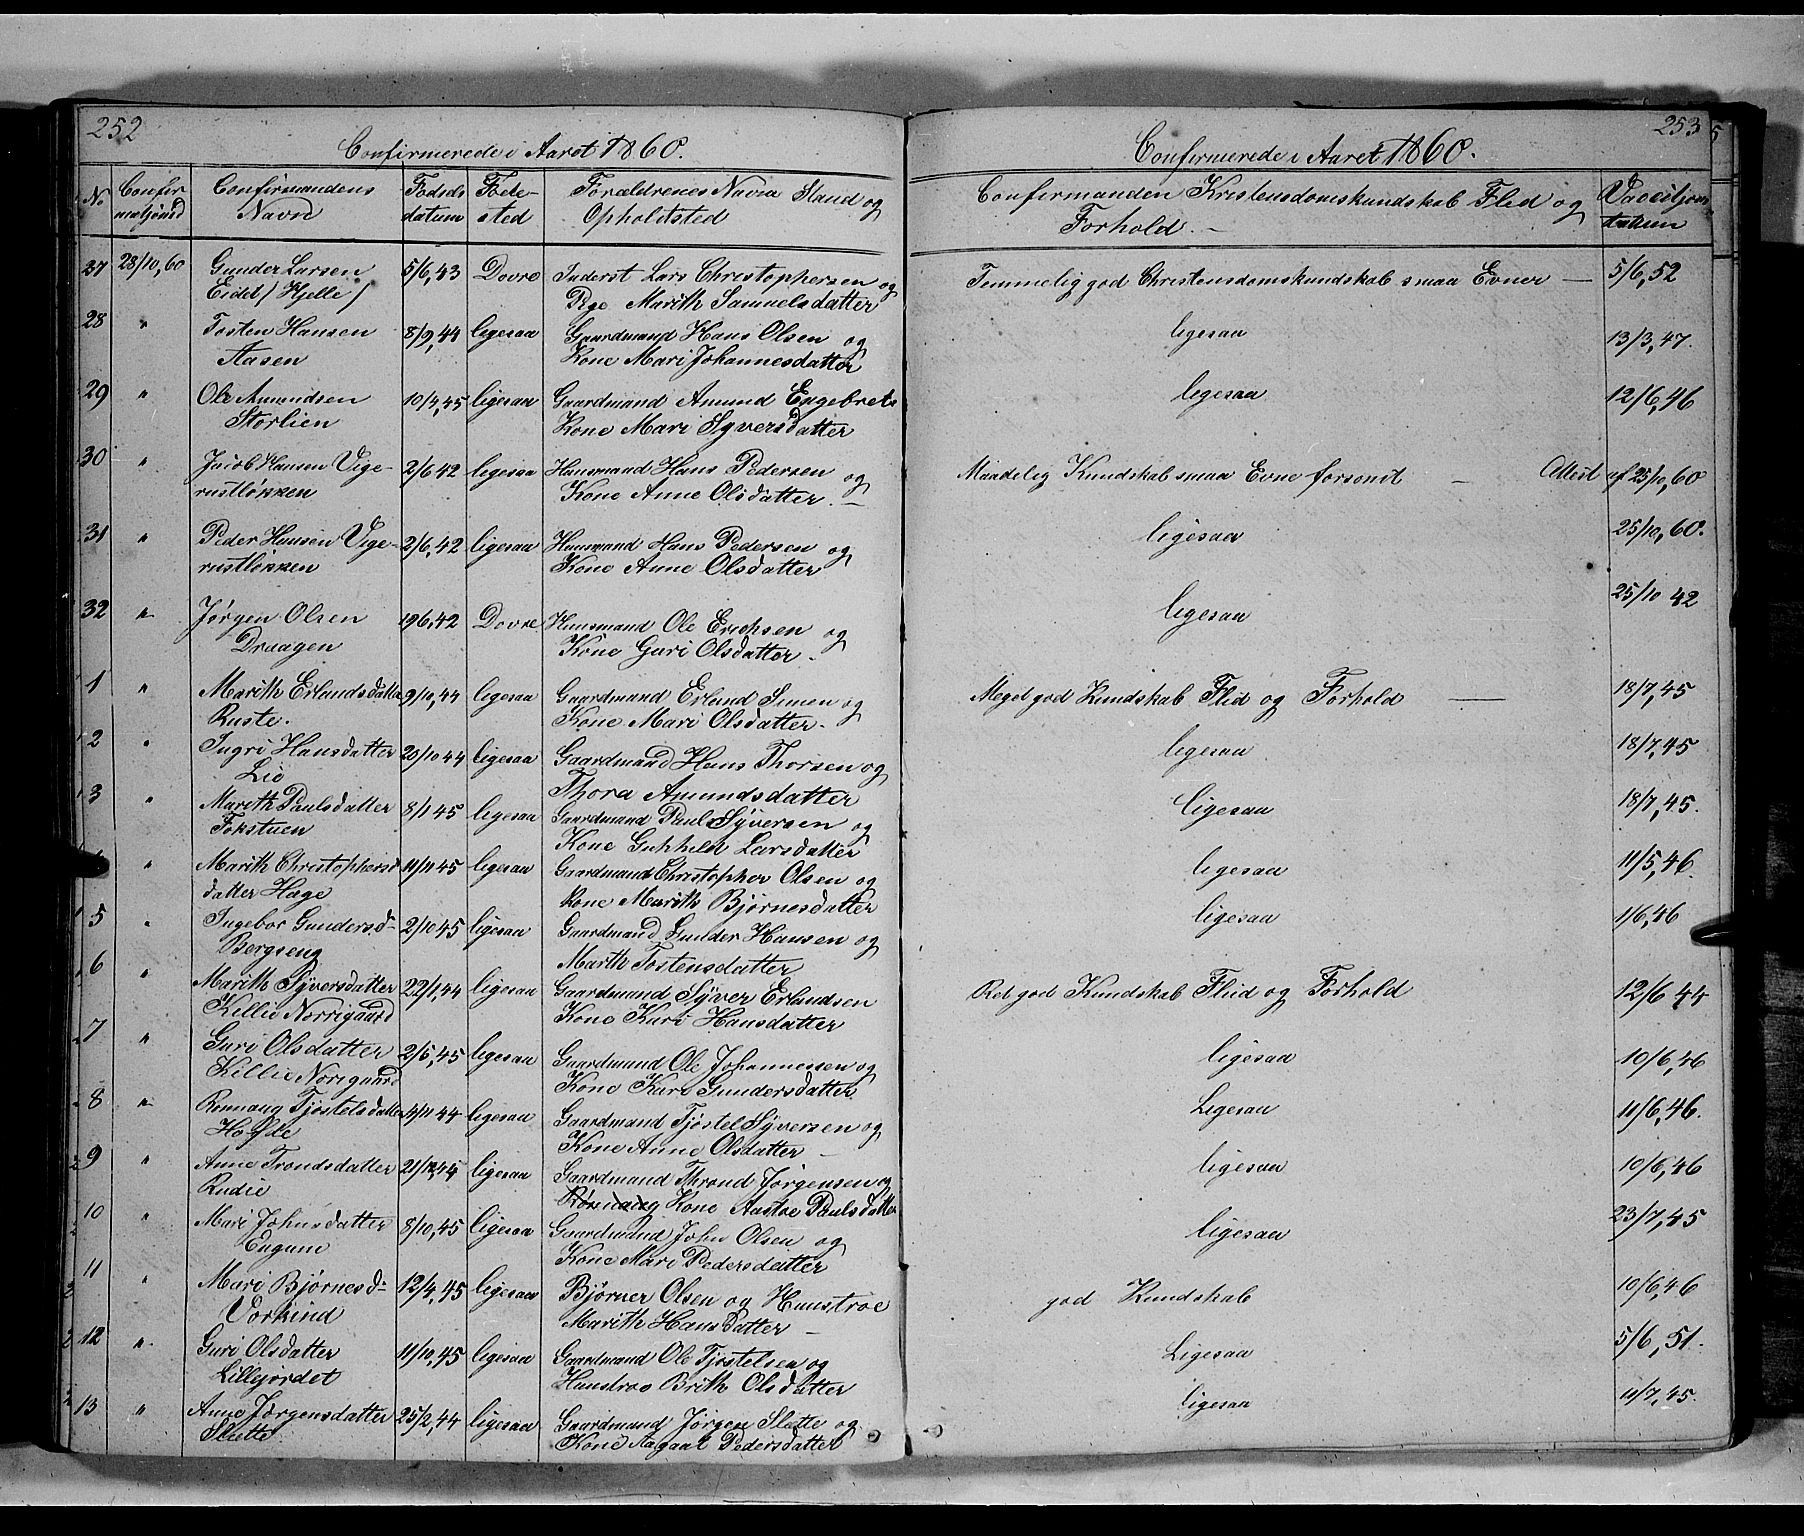 252
Confirmerede i Aaret 1860.
No Confirmatjonsd Confirmandens Navn Fødsdatum Fødested Forældrenes Navn Stand og Opholdtsted
27 28/10,60 Gunder Larsen 5/6,43 Dovre Inderst Lars Christophersen og
Eidet / Hjelle / Pige Marith Samuelsdatter
28 " Tosten Hansen 8/9,44 ligesaa Gaardmand Hans Olsen og
Aasen Kone Mari Johannesdatter
29 " Ole Amundsen 10/4,45 ligesaa Gaardmand Amund Engebrets
Storlien Kone Mari Syversdatter
30 " Jacob Hansen Vige- 2/6 42 ligesaa Huusmand Hans Pedersen og
rustløkken Kone Anne Olsdatter. —
31 " Peder Hansen Vige- 2/6,42 ligesaa Huusmand Hans Pedersen og
rustløkken Kone Anne Olsdatter
32 " Jørgen Olsen 196,42 Dovre Huusmand Ole Erichsen og
Draagen Kone Guri Olsdatter -
1 " Marith Erlandsdatter 9/10,44 ligesaa Gaardmand Erland Simen og
Ruste. Kone Mari Olsdatter.
2 " Ingri Hansdatter 20/10 44 ligesaa Gaardmand Hans Thorsen og
Lie Thora Amundsdatter
3 " Marith Paulsdatter 8/1 45 ligesaa Gaardmand Paul Syversen og
Fokstuen Kone Larsdatter
" Marith Christophersd 11/11 45 ligesaa Gaardmand Christopher Olsen og
datter Hage Kone Marith Bjørnesdatter
5 " Ingebor Gundersd- 2/10 45 ligesaa Gaardmand Gunder Hansen og
Bergseng Marith Tostensdatter
6 " Marith Syversdatter 22/1,44 ligesaa Gaardmand Syver Erlandsen
Killie Norrigaard Kone Kari Hansdatter
7 " Guri Olsdatter 2/5,45 ligesaa Gaardmand Ole Johannessen og
Killie Norigaard Kone Kari Gundersdatter
8 " Ronnaug Tjøstelsdatter 4/11 44 ligesaa Gaardmand Tjøstel Syversen og
Kone Anne Olsdatter —
9 " Anne Trondsdatter 21/12,45 ligesaa Gaardmand Thrond Jørgensen og
Rudie Rønnaug Kone Aastoe Paulsdatter
10 " Mari Johnsdatter 8/10,45 ligesaa Gaardmand John Olsen og
Engum Kone Mari Pedersdatter
11 " Mari Bjørnesd- 12/4,45 ligesaa Bjørner Olsen og Huustroe
Vorkind Marith Hansdatter —
12 " Guri Olsdatter 11/10,45 ligesaa Gaardmand Ole Tjøstelsen og
Lillejordet Huustroe Brith Olsdatter
13 " Anne Jørgensdatter 25/2,44 ligesaa Gaardmand Jørgen Slette og
Slette Kone Aagaat Pedersdatter
253
Confirmerede i Aaret 1860.
Confirmanden Kristensdomskundskab Flid og Forhold. —
Temmelig god Christensdomskundskab smaa Evner — 5/6,52
ligesaa 13/3,47.
ligesaa 12/6,46
Maadelig Kundskab smaa Evne forsomt — Attest af 25/10,60
ligesaa 25/10,60.
ligesaa 25/10 42
Meget god Kundskab Flid og Forhold — 18/7,45
ligesaa 18/7,45
ligesaa 18/7,45.
ligesaa 11/5,46.
ligesaa 1/6,46
Ret god Kundskab Flid og Forhold 12/6 44
ligesaa 10/6,46
Ligesaa 11/6,46.
ligesaa 10/6,46
ligesaa 23/7,45
god Kundskab 10/6,46
Ligesaa 5/6,51.
ligesaa 11/7,45.